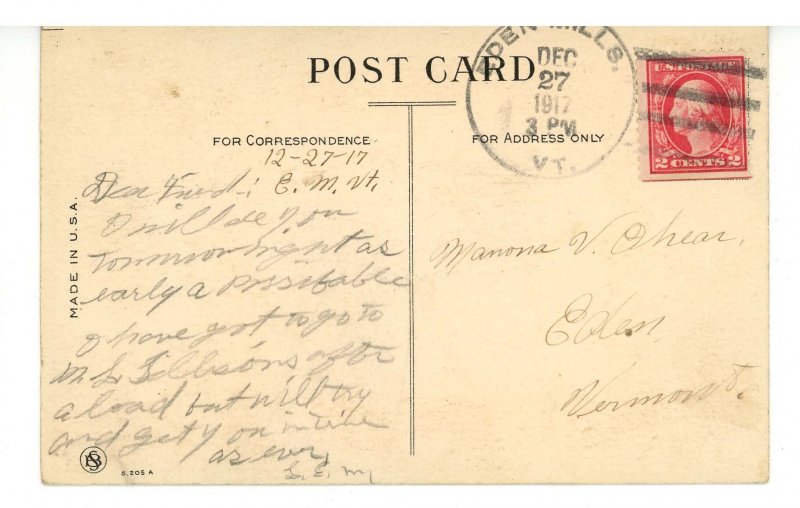 POST CARD
EDEN MILLS.
DEC
27
1917
3 PM
VT.
U.S. POSTAGE
2 CENTS 2
FOR CORRESPONDENCE
FOR ADDRESS ONLY
12-27-17
E. M. Vt.
Dear Friend:
I will see you
tomorrow night as
early a possible
I have got to go to
after
a load but will try
and get you in time
as ever
L. E. M.
Manona V. Shear,
Eden,
Vermont.
MADE IN U.S.A.
S. 205 A